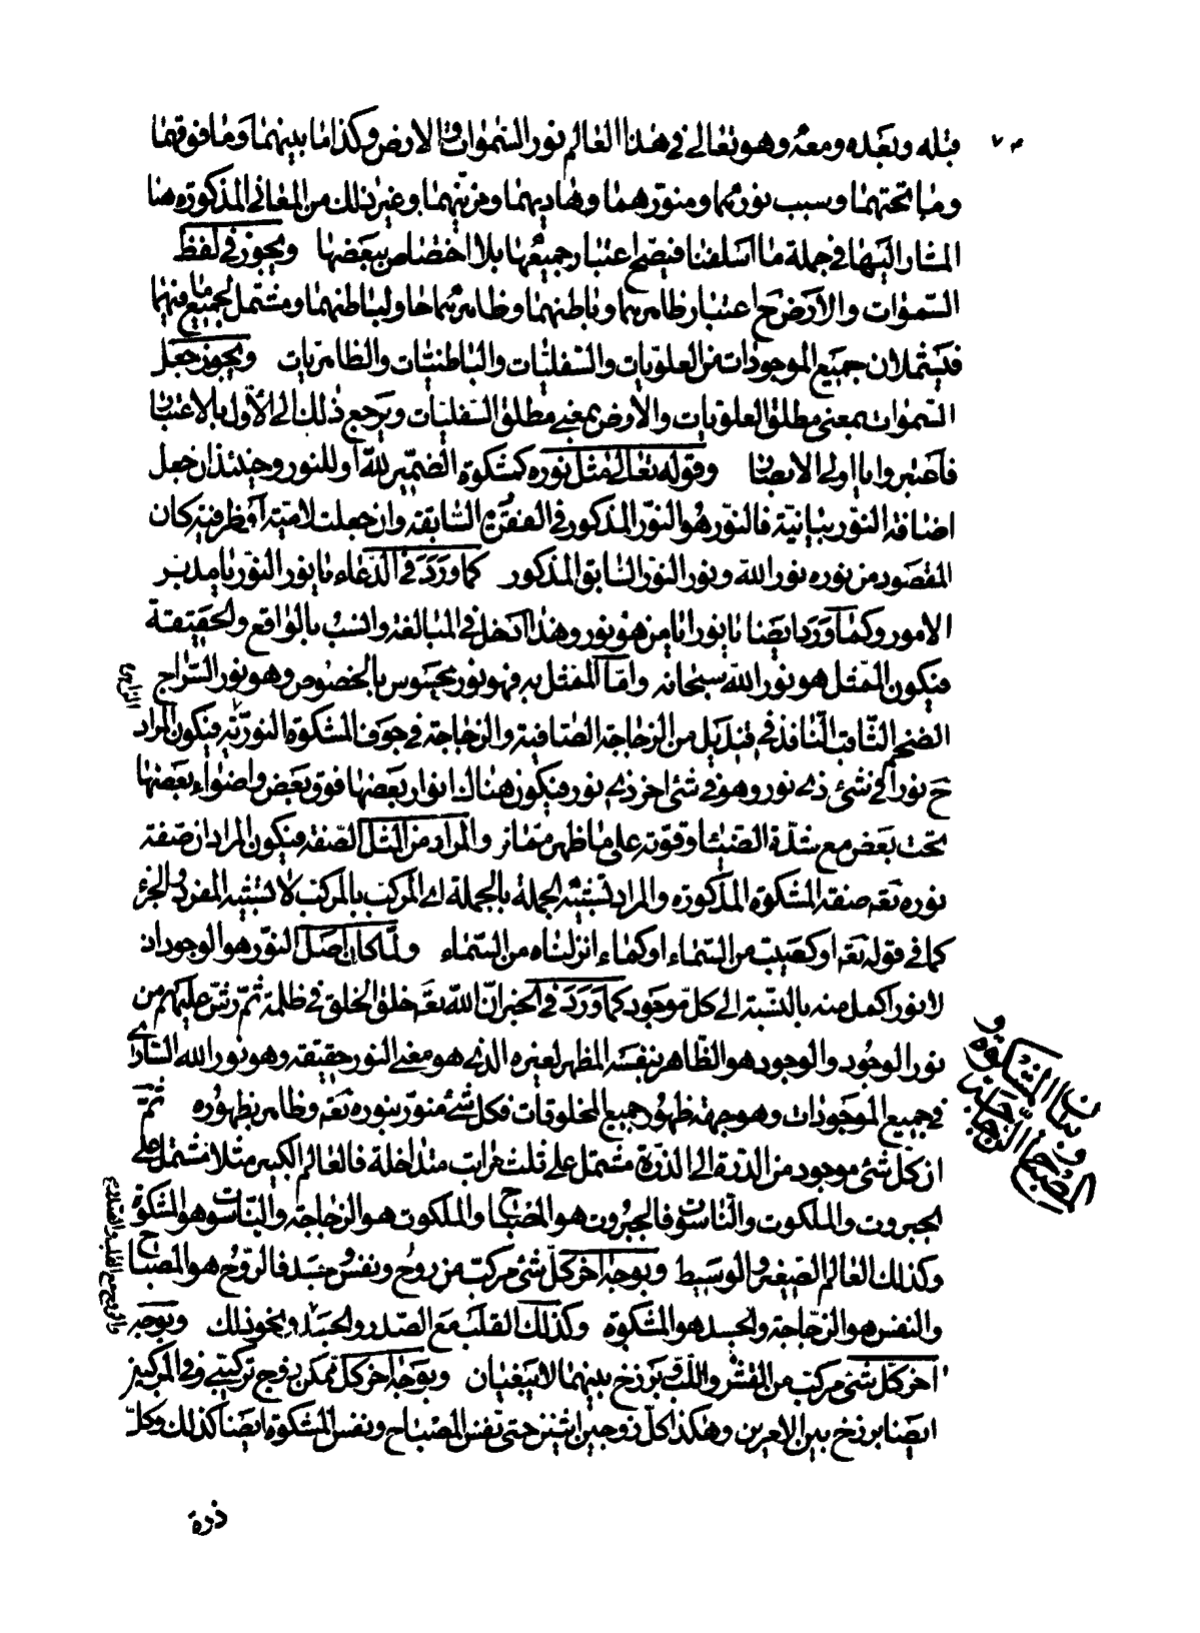 ٧٣
قبله وبعده ومعه وهو تعالى في هذا العالم نور السموات والارض وكذا ما بينهما وما فوقهما
وما تحتهما وسبب نورهما ومنورهما وهاديهما ومزينهما وغير ذلك من المعاني المذكورة هنا
المشار اليها في جملة ما اسلفنا فيصح اعتبار جميعها بلا اختصاص ببعضها ويجوز في لفظ
السموات والارض ح اعتبار ظاهرهما وباطنهما وظاهرهما حاو لباطنهما ومشتمل لجميع ما فيهما
فيشملان جميع الموجودات من العلويات والسفليات والباطنيات والظاهريات ويجوز جعل
السموات بمعنى مطلق العلويات والارض بمعنى مطلق السفليات ويرجع ذلك الى الاول بالاعتبار
فاعتبروا يا اولى الابصار وقوله تعالى مثل نوره كمشكوة الضمير لله او للنور وحينئذ ان جعل
اضافة النور بيانية فالنور هو النور المذكور في الفقرة السابقة وان جعلت لامية او ظرفية كان
المقصود من نوره نور الله ونور النور السابق المذكور كما ورد في الدعاء يا نور النور يا مدبر
الامور وكما ورد ايضا يا نورا يا من هو نور وهذا ادخل في المبالغة وانسب بالواقع والحقيقة
فيكون الممثل هو نور الله سبحانه واما الممثل به فهو نور محسوس بالخصوص وهو نور السراج
الضخم الثاقب النافذ في قنديل من الزجاجة الصافية والزجاجة في جوف المشكوة النورية فيكون المراد
ح نورا في شئ ذى نور وهو في شئ اخر ذى نور فيكون هناك انوار بعضها فوق بعض واضواء بعضها
تحت بعض مع شدة الضياء وقوته على ما ظهر مقامر والمراد من المثل الصفة فيكون المراد ان صفة
نوره تعه صفة المشكوة المذكورة والمراد تشبيه الجملة بالجملة اى المركب بالمركب لا تشبيه المفرد والجزء
كما في قوله تعه او كصيب من السماء او كماء انزلناه من السماء ولما كان اصل النور هو الوجود اذ
لا نور اكمل منه بالنسبة الى كل موجود كما ورد في الخبر ان الله تعه خلق الخلق في ظلمة ثم رش عليهم من
نور الوجود والوجود هو الظاهر بنفسه المظهر لغيره الذى هو معنى النور حقيقة وهو نور الله السارى
في جميع الموجودات وهو جهة ظهور جميع المخلوقات فكل شئ منور بنوره تعه وظاهر بظهوره ثم
ان كل شئ موجود من الذرة الى الذرة مشتمل على ثلث مراتب متداخلة فالعالم الكبير مثلا مشتمل على
الجبروت والملكوت والناسوت فالجبروت هو المصباح والملكوت هو الزجاجة والناسوت هو المشكوة
وكذلك العالم الصغير والوسيط وبوجه اخر كل شئ مركب من روح ونفس وجسد فالروح هو المصباح
والنفس هو الزجاجة والجسد هو المشكوة وكذلك القلب مع الصدر والجسد ونحو ذلك وبوجه
اخر كل شئ مركب من القشر واللب وبرزخ بينهما لا يبغيان وبوجه اخر كل ممكن زوج تركيبى وفى المركبين
ايضا برزخ بين الامرين وهكذا كل زوجين اثنين حتى نفس المصباح ونفس المشكوة ايضا كذلك وكل
ذرة
وبيان المشكوة و
المصباح الزجاجة